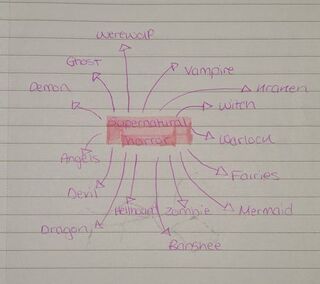 Werewolf
Ghost
Vampire
Demon
Kraken
Witch
Supernatural
horror
Warlock
Angels
Fairies
Devil
Hellhound
Zombie
Mermaid
Dragon
Banshee